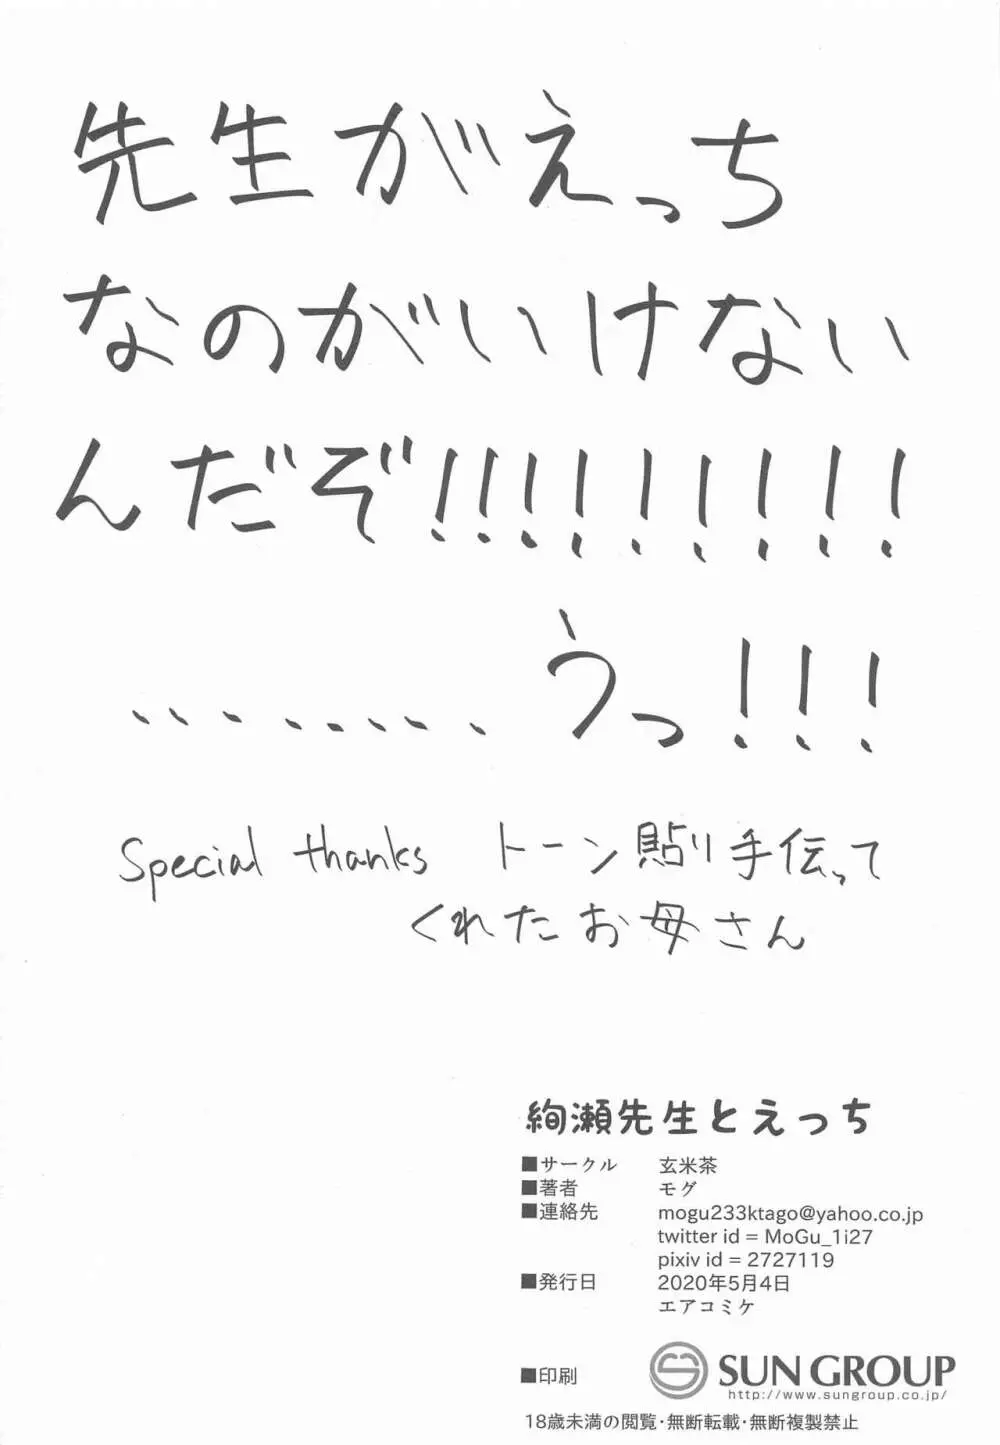 先生がえっち
なのがいけない
んだぞ!!!!!!!!!
........うっ!!!
Special thanks トーン貼り手伝って
くれたお母さん
絢瀬先生とえっち
■サークル 玄米茶
■著者 モグ
■連絡先 mogu233ktago@yahoo.co.jp
twitter id = MoGu_1i27
pixiv id = 2727119
■発行日 2020年5月4日
エアコミケ
■印刷 SUN GROUP
http://www.sungroup.co.jp/
18歳未満の閲覧・無断転載・無断複製禁止